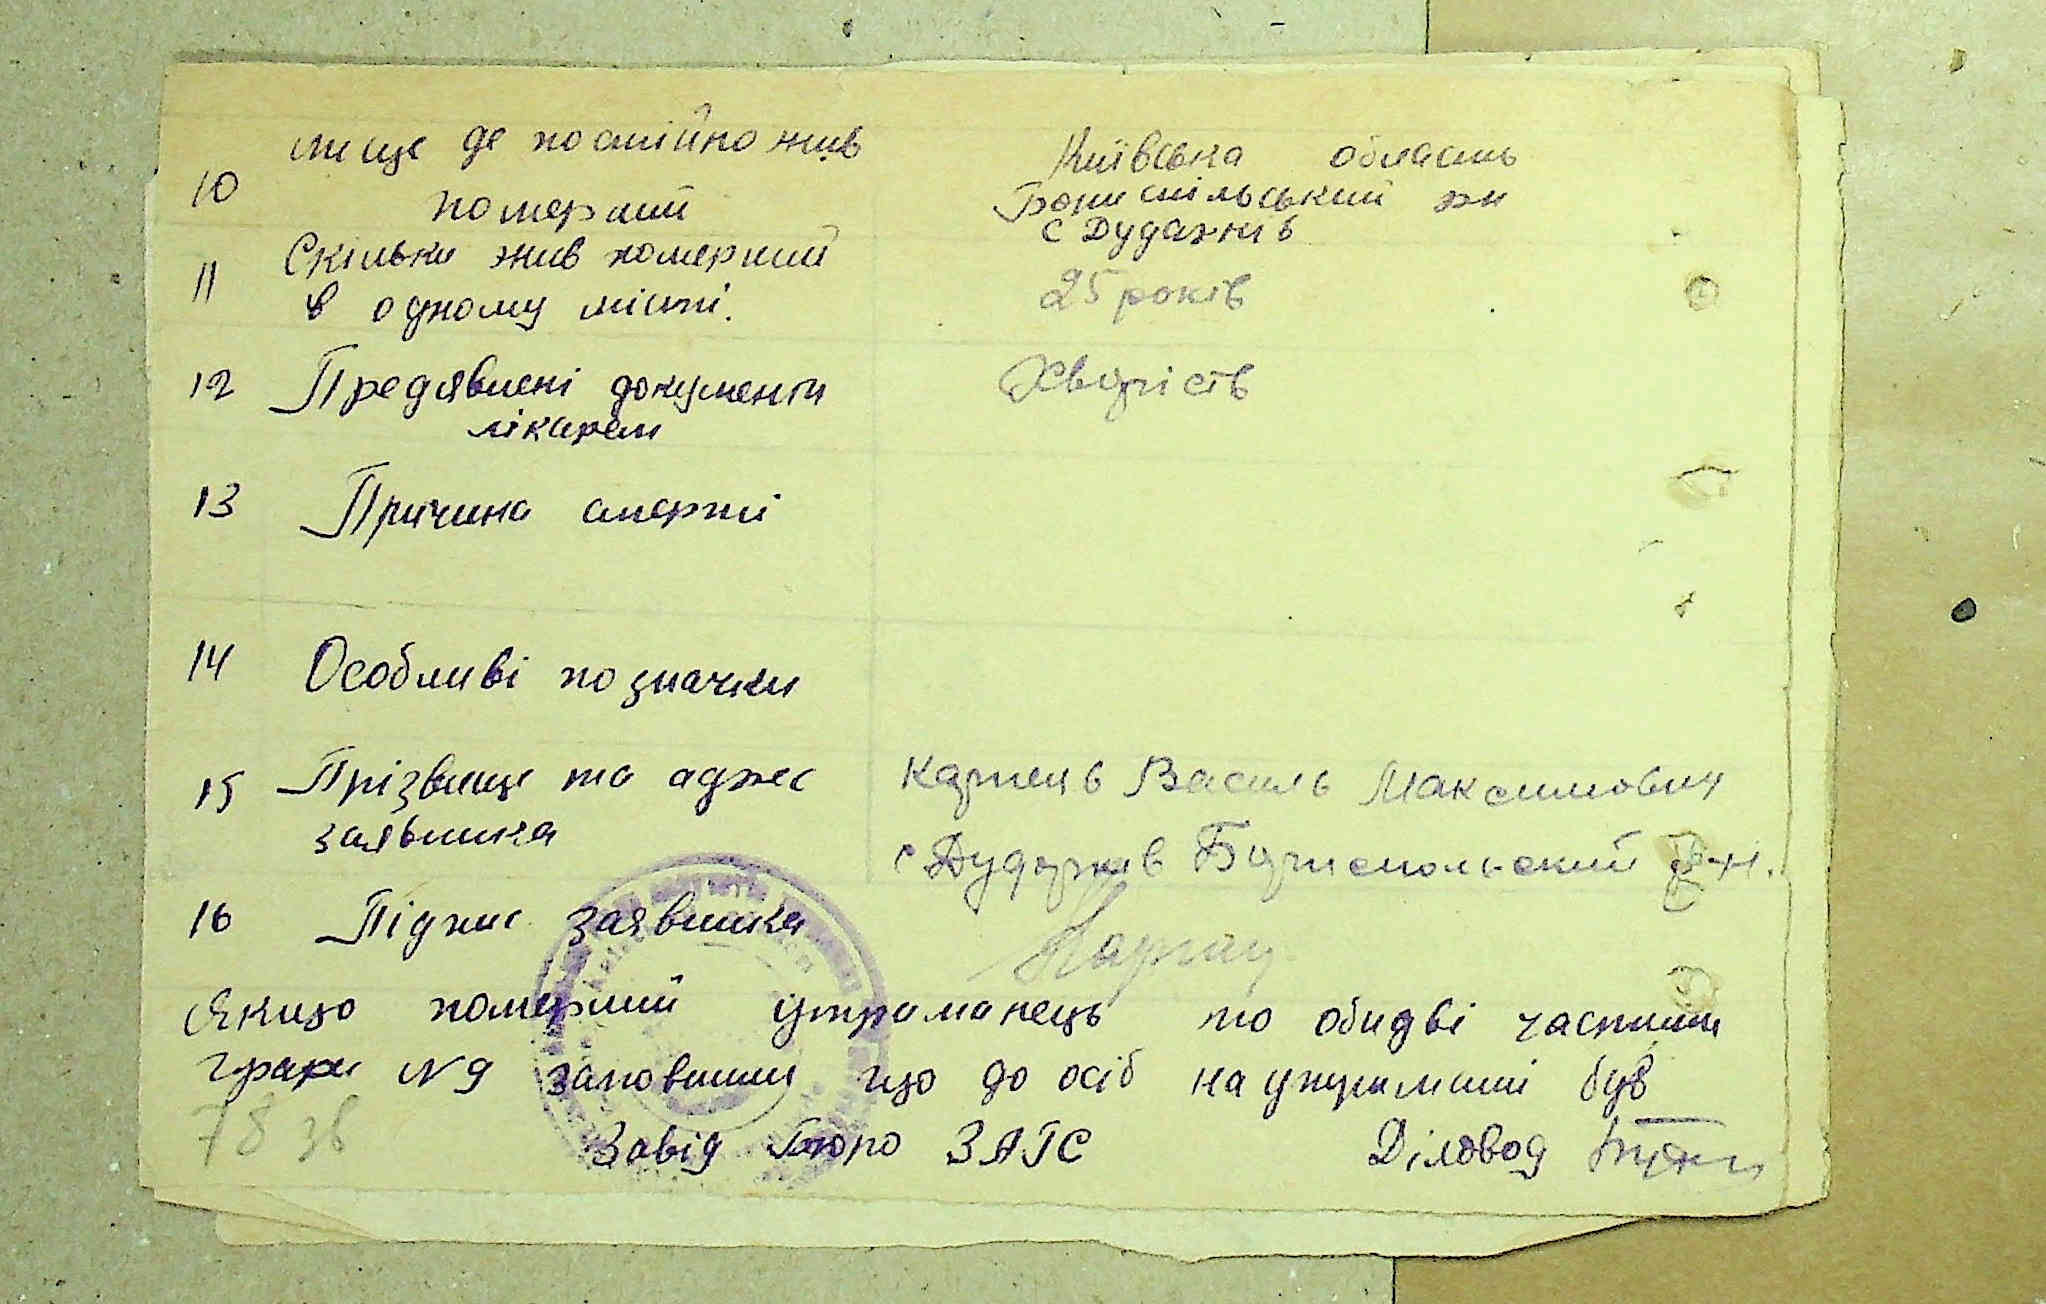 10 місце де постійно жив Київська область
померший Бориспільський рн
с Дударків
11 Скільки жив померший
в одному місті. 25 років
12 Предявлені документи Хворість
лікарем
13 Причина смерти
14 Особливі позначки
15 Прізвище та адрес Карпець Василь Максимович
заявника с Дударків Бориспольский р-н.
16 Підпис заявника
Якщо померший утриманець то обидві частини
графи №9 заповнити що до осіб на утриманні був
78 зв
Завід Бюро ЗАГС Діловод